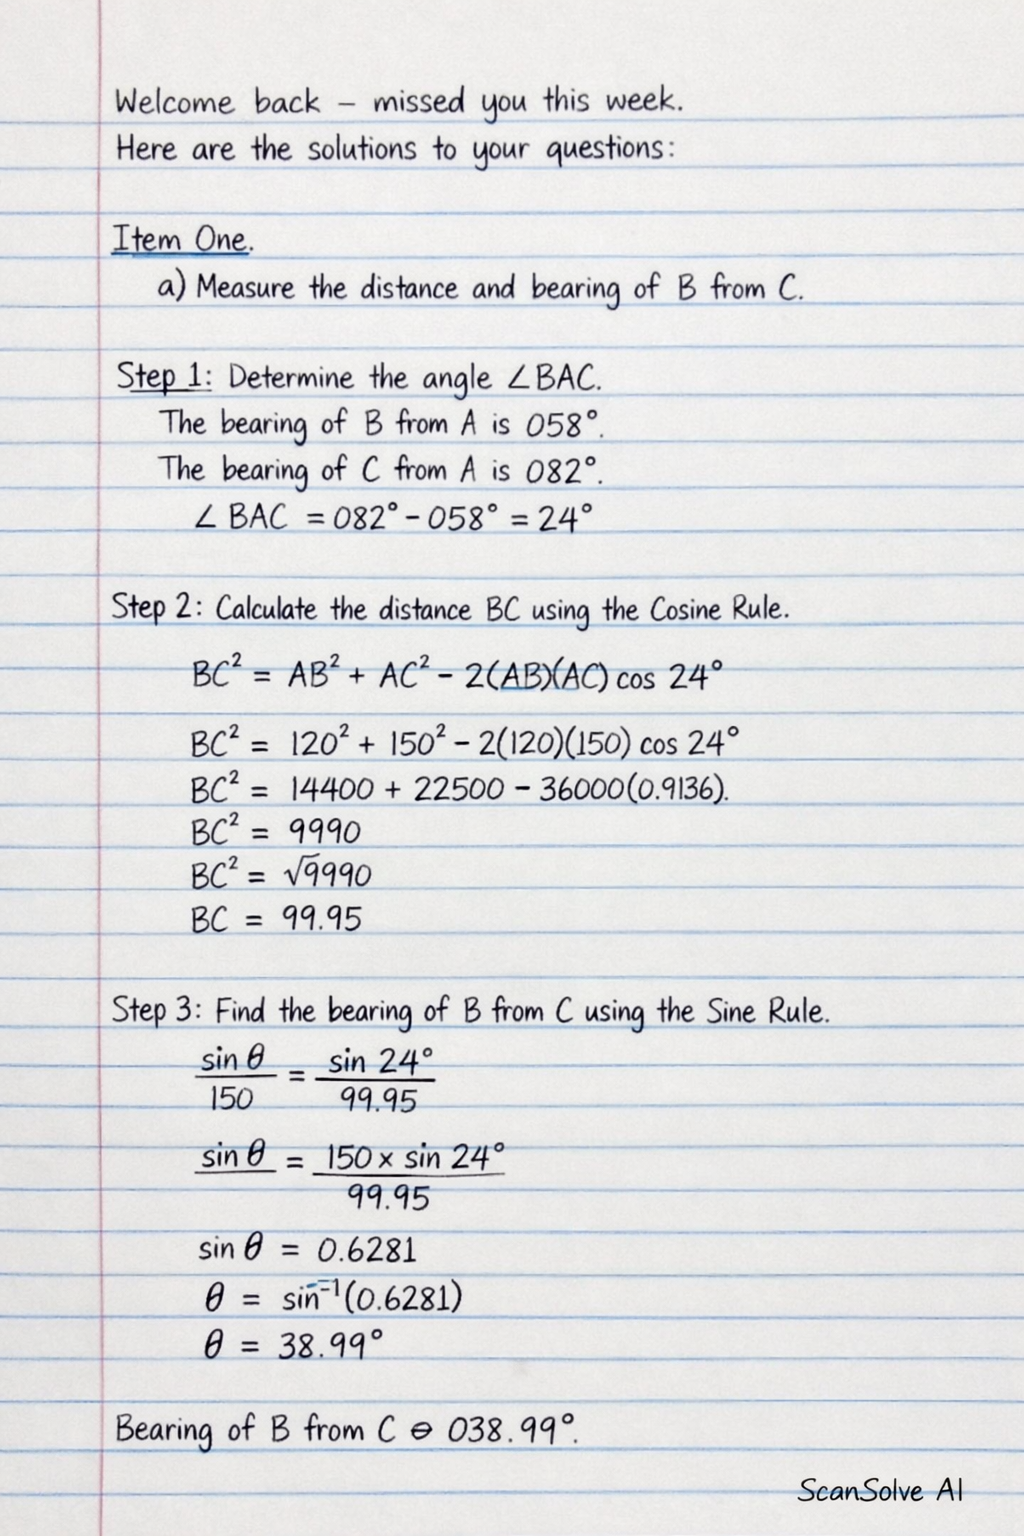 Welcome back – missed you this week.
Here are the solutions to your questions:
Item One.
a) Measure the distance and bearing of B from C.
Step 1: Determine the angle ∠BAC.
The bearing of B from A is 058°.
The bearing of C from A is 082°.
∠ BAC = 082° - 058° = 24°
Step 2: Calculate the distance BC using the Cosine Rule.
BC² = AB² + AC² - 2(AB)(AC) cos 24°
BC² = 120² + 150² - 2(120)(150) cos 24°
BC² = 14400 + 22500 - 36000(0.9136).
BC² = 9990
BC² = √9990
BC = 99.95
Step 3: Find the bearing of B from C using the Sine Rule.
sin θ / 150 = sin 24° / 99.95
sin θ = 150 x sin 24° / 99.95
sin θ = 0.6281
θ = sin⁻¹(0.6281)
θ = 38.99°
Bearing of B from C ⊖ 038.99°.
ScanSolve AI